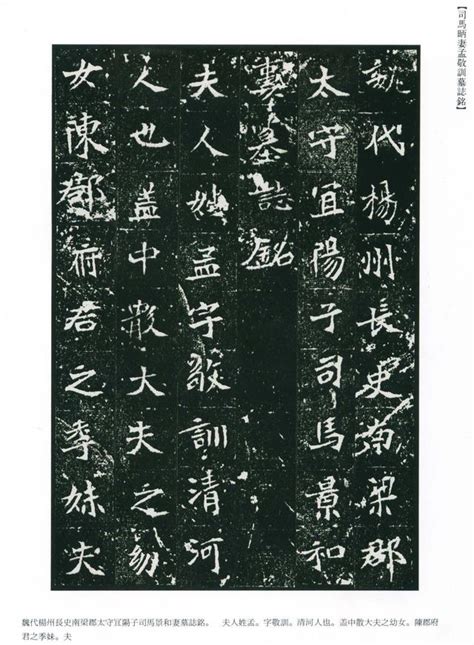 【司馬昞妻孟敬訓墓誌銘】
魏代楊州長史南梁郡
太守宜陽子司馬景和
妻墓誌銘
夫人姓孟字敬訓清河
人也盖中散大夫之幼
女陳郡府君之季妹夫
魏代楊州長史南梁郡太守宜陽子司馬景和妻墓誌銘。　夫人姓孟。字敬訓。清河人也。盖中散大夫之幼女。陳郡府
君之季妹。夫